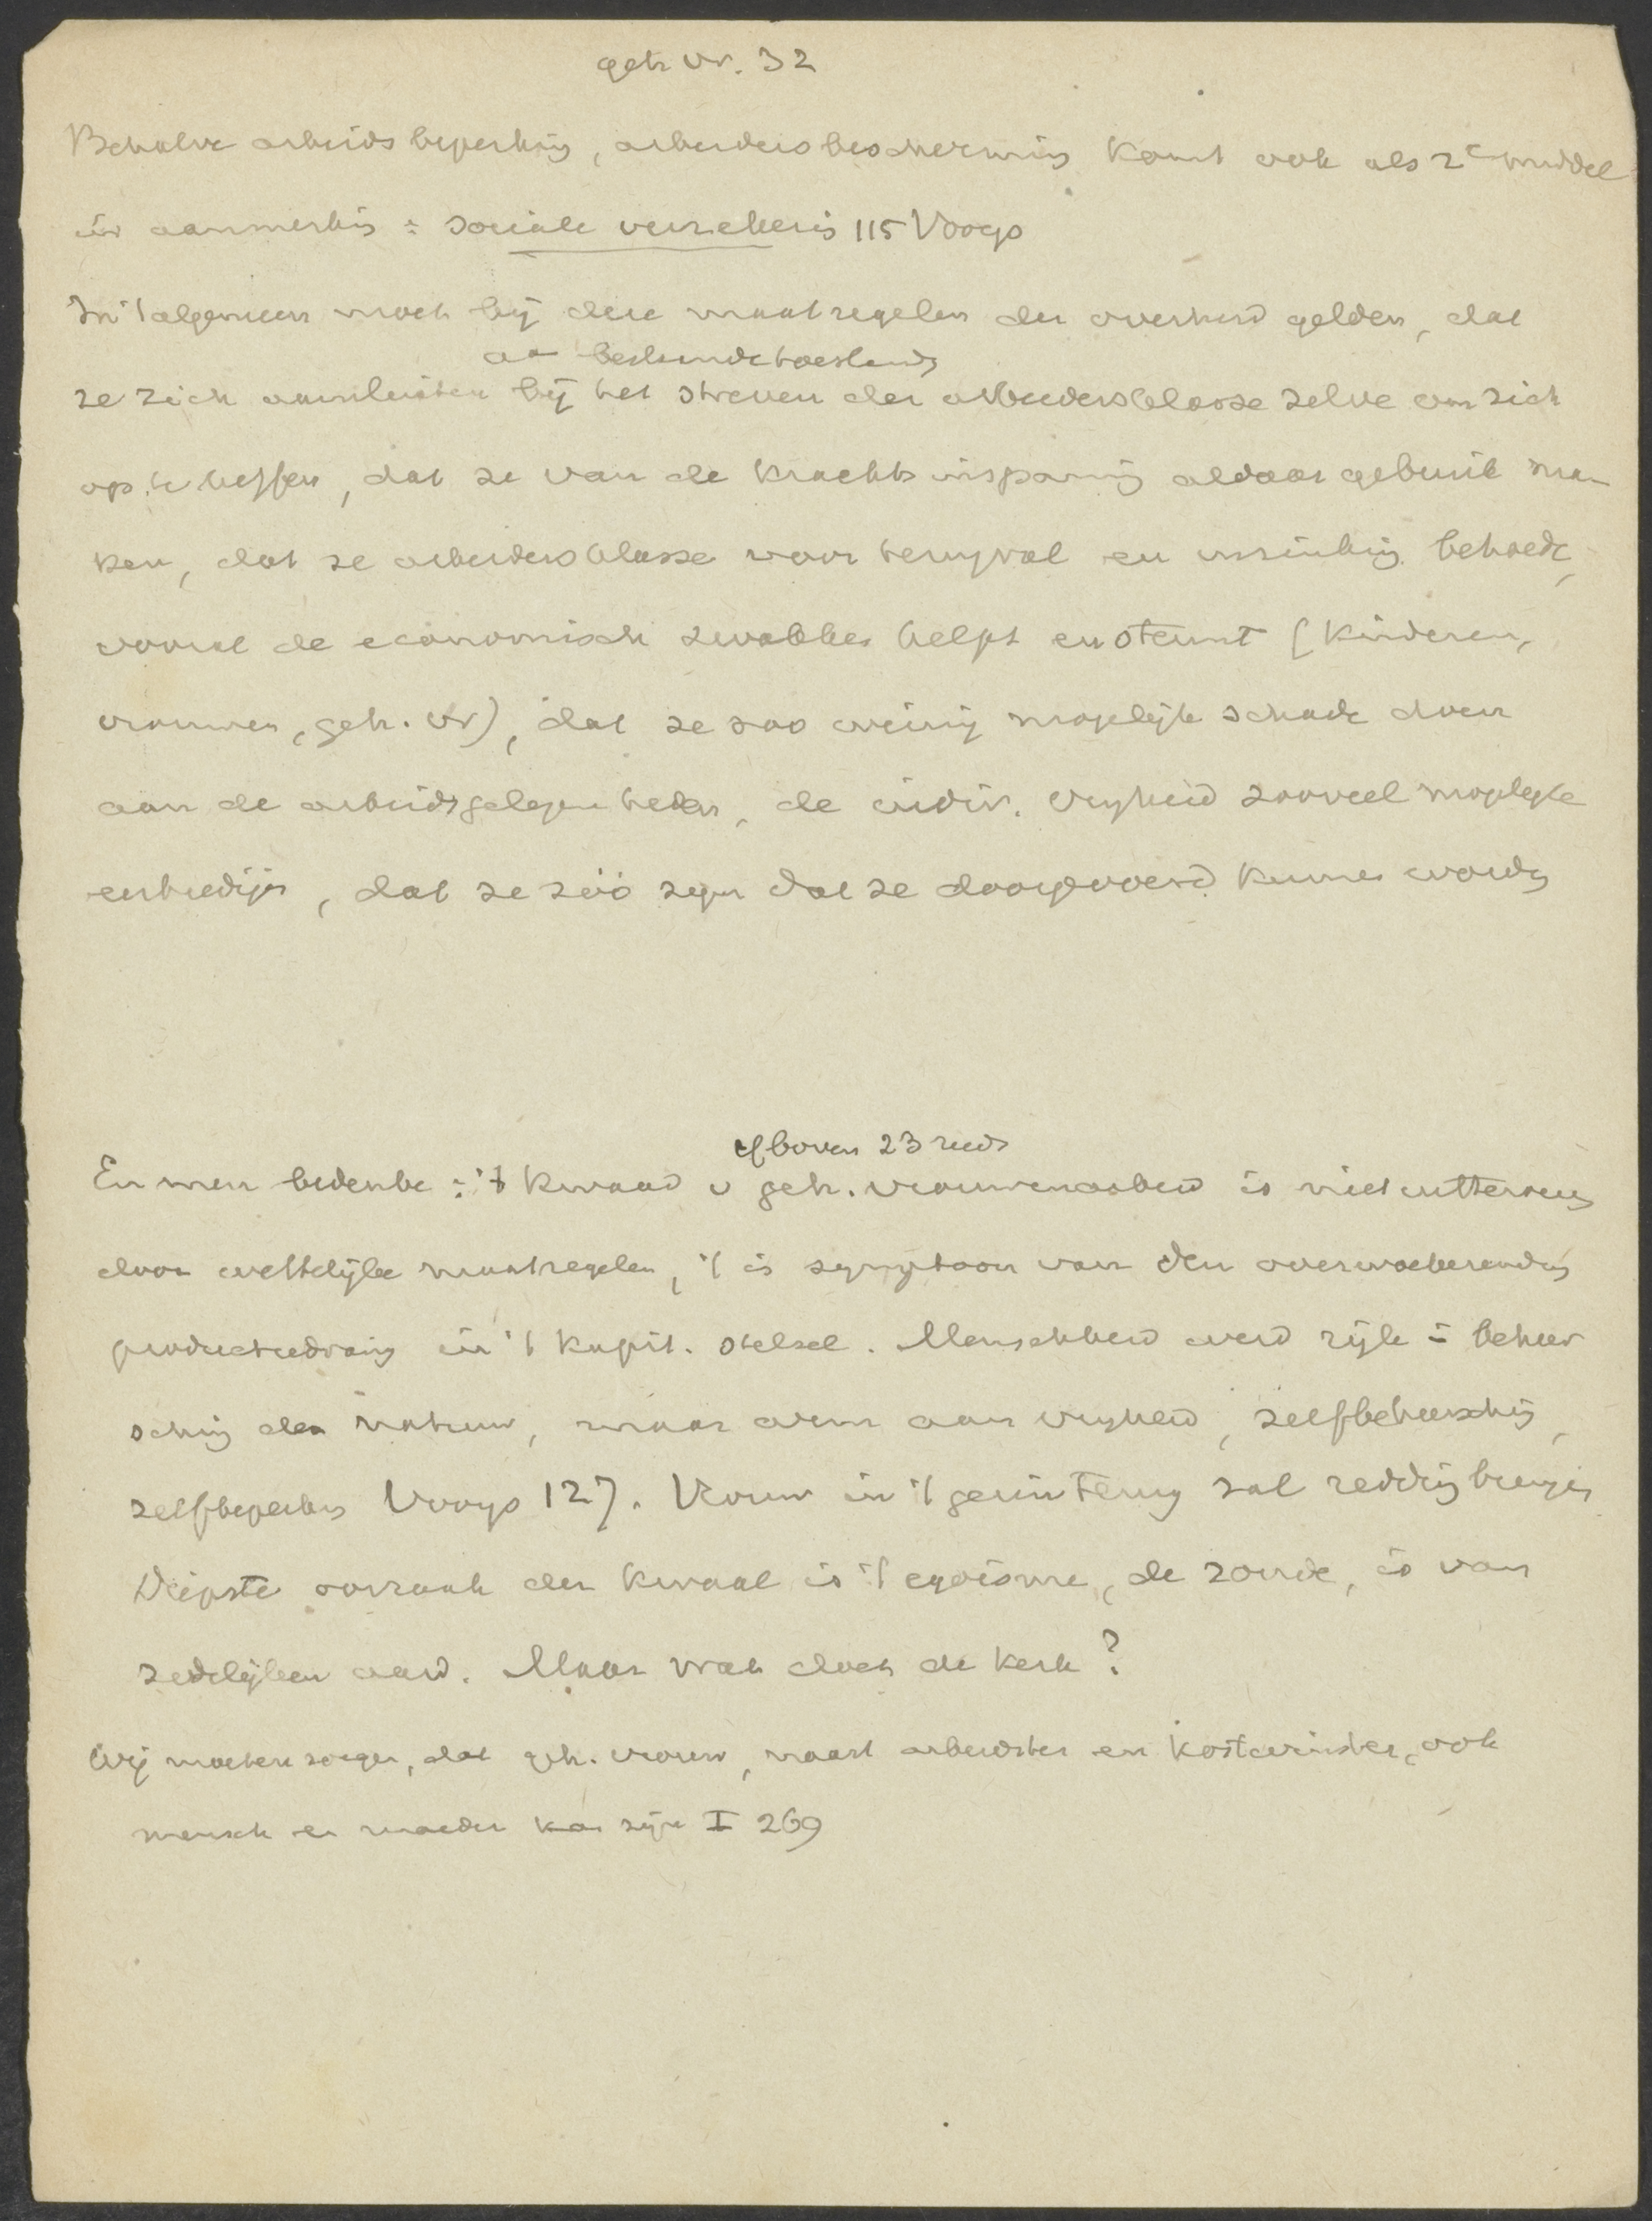 geh vr. 32
Behalve arbeidsbeperking, arbeidersbescherming komt ook als 2e middel
in aanmerking: sociale verzekering 115 Vooys
In 't algemeen moet bij deze maatregelen der overheid gelden, dat
aan bestaande toestand
ze zich aansluiten bij het streven der arbeidersklasse zelve om zich
op te heffen, dat ze van de krachtsinspanning aldaar gebruik ma-
ken, dat ze arbeidersklasse voor terugval en inzinking behoede,
vooral de economisch zwakkes helpt en steunt (kinderen,
vrouwen, geh. vr), dat ze zoo weinig mogelijk schade doen
aan de arbeidsgelegenheden, de indiv. vrijheid zooveel mogelijk
eerbiedigen, dat ze zóó zijn dat ze doorgevoerd kunnen worden
cf boven 23 reeds
En men bedenke: 't kwaad v geh. vrouwenarbeid is niet uitteroeien
door wettelijke maatregelen, 't is symptoom van den overwoekerenden
productiedrang in 't kapit. stelsel. Menschheid werd rijk in beheer
sching der natuur, maar arm aan vrijheid, zelfbeheersching,
zelfbeperking Vooys 127. Vrouw in 't gezin terug zal redding brengen
Diepste oorzaak der kwaal is 't egoïsme, de zonde, is van
zedelijken aard. Maar wat doet de kerk?
Wij moeten zorgen, dat geh. vrouw, naast arbeidster en kostwinster, ook
mensch en moeder kan zijn I 269